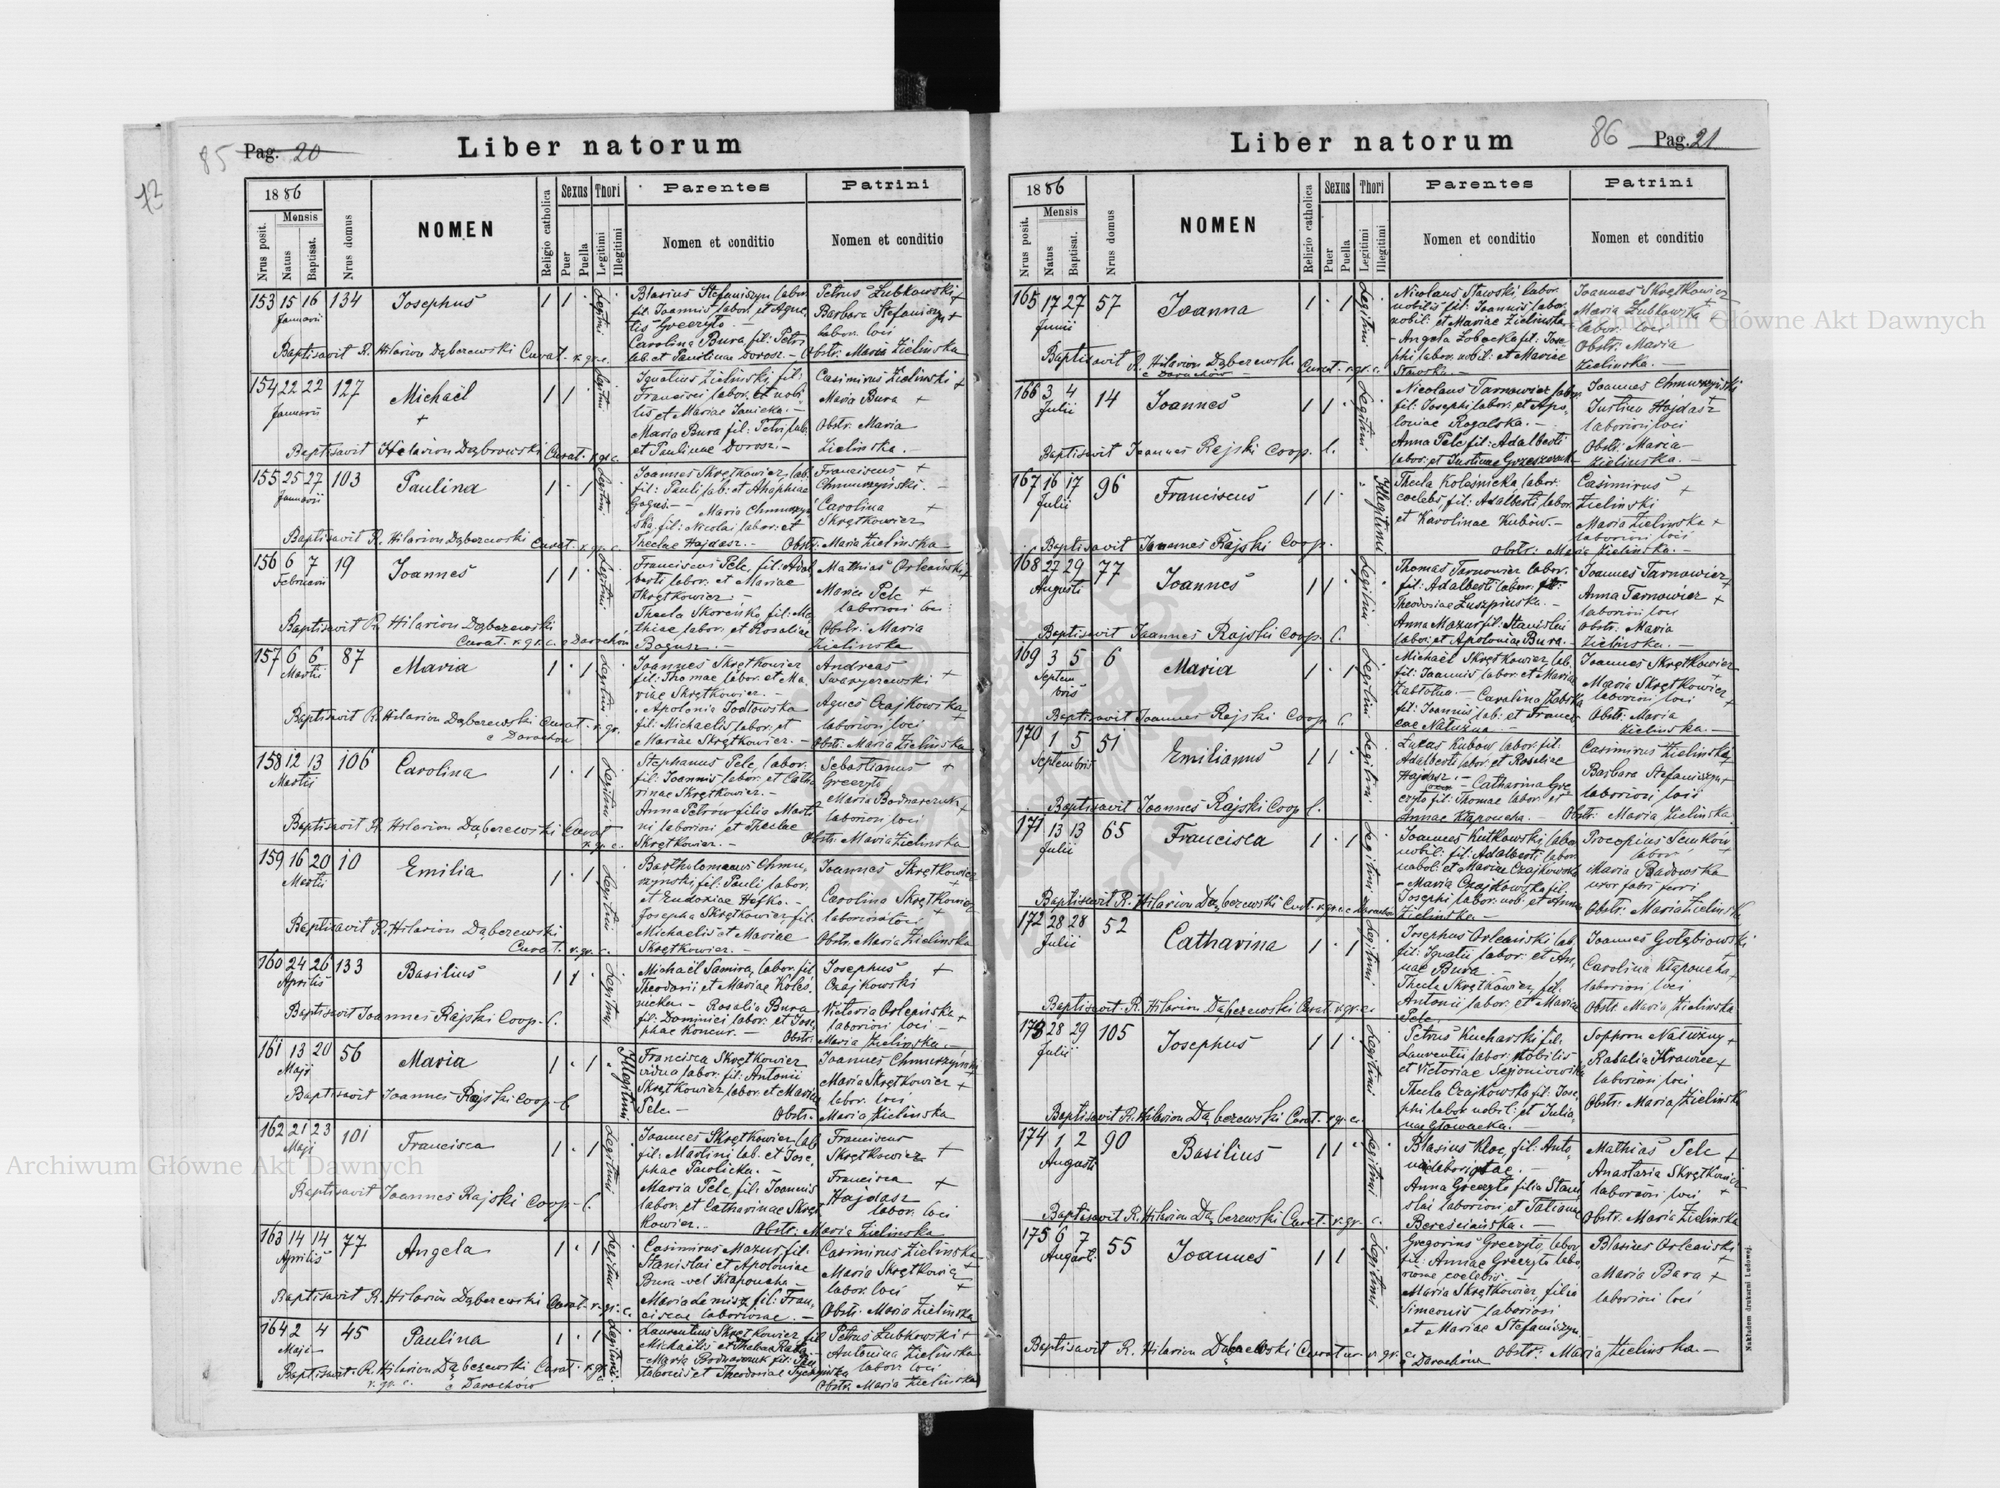 85 Pag. 20
Liber natorum
1886
Mensis
Nrus posit.
Natus
Baptisat.
Nrus domus
NOMEN
Religio catholica
Sexus
Puer
Puella
Thori
Legitimi
Illegitimi
Parentes
Nomen et conditio
Patrini
Nomen et conditio
153 15 16 134 Josephus 1 1 Legitimi
Januarii
Blasius Stefaniszyn labor.
fil: Joannis labor. et Agne
tis Greczyło
Carolina Bura fil: Petri
lab. et Paulinae Dorosz. –
Petrus Lubkowski +
Barbara Stefaniszyn +
labor. loci
Obstr: Maria Zielinska
Baptisavit R. Hilarion Dąbczewski Curat. r. gr. c.
154 22 22 127 Michaël 1 1 Legitimi
Januarii
Ignatius Zielinski, fil:
Francisci labor. et nobi
lis et Mariae Janicka. –
Maria Bura fil: Petri lab.
et Paulinae Dorosz –
Casimirus Zielinski +
Maria Bura +
Obstr: Maria
Zielinska. –
Baptisavit Hilarion Dąbrowski Curat. r. gr. c.
155 25 27 103 Paulina 1 . 1 Legitimi
Januarii
Joannes Skrętkowicz, lab.
fil: Pauli lab: et Ahaphiae
Gogus. – Maria Chmurzyn
ska fil: Nicolai labor: et
Theclae Hajdasz. –
Franciscus +
Chmurzyński. –
Carolina +
Skrętkowicz
Obstr: Maria Zielinska –
Baptisavit R. Hilarion Dąbczewski Curat. r. gr. c.
156 6 7 19 Joannes 1 1 Legitimi
Februarii
Franciscus Pelc, fil: Adal
berti labor. et Mariae
Skrętkowicz. –
Thecla Skoreńka fil: Ma
thiae labor. et Rosaliae
Bogusz. –
Mathias Orleański +
Maria Pelc +
laboriosi loci
Obstr: Maria
Zielinska
Baptisavit R. Hilarion Dąbczewski
Curat. r. gr. c. e Darachów
157 6 6 87 Maria 1 . 1 Legitimi
Martii
Joannes Skrętkowicz
fil: Thomae labor. et Ma
riae Skrętkowicz. –
Apolonia Jodłowska
fil: Michaelis labor. et
Mariae Skrętkowicz. –
Andreas
Agnes Czajkowska
laboriosi loci
Obstr: Maria Zielinska
Baptisavit R. Hilarion Dąbczewski Curat. r. gr.
e Darachów
158 12 13 106 Carolina 1 . 1 Legitimi
Martii
Stephanus Pelc, labor.
fil: Joannis labor. et Catha
rinae Skrętkowicz. –
Anna Petrów filia Marti
ni laboriosi et Theclae
Skrętkowicz. –
Sebastianus +
Greczyło
Maria Bodnarczuk +
laboriosi loci
Obstr: Maria Zielinska
Baptisavit R. Hilarion Dąbczewski Curat.
r. gr. c.
159 16 20 10 Emilia 1 . 1 Legitimi
Martii
Bartholomaeus Chmu
rzynski fil: Pauli labor.
et Eudoxiae Hefko. –
Josepha Skrętkowicz fil.
Michaelis et Mariae
Skrętkowicz. –
Joannes Skrętkowicz
Carolina Skrętkowicz
laboriosi loci +
Obstr: Maria Zielinska
Baptisavit R. Hilarion Dąbczewski
Curat. r. gr. c.
160 24 26 133 Basilius 1 1 Legitimi
Aprilis
Michaël Samira, labor. fil
Theodorii et Mariae Koleś
nicka. – Rosalia Bura
fil: Dominici labor. et Jose
phae Koncur. –
Josephus +
Czajkowski
Victoria Orlepińska +
laboriosi loci –
Obstr: Maria Zielinska. –
Baptisavit Joannes Rajski Coop. l.
161 13 20 56 Maria 1 . 1 Illegitimi
Maji
Francisca Skrętkowicz
vidua labor. fil: Antonii
Skrętkowicz labor. et Mariae
Pelc –
Joannes Chmurzyński
Maria Skrętkowicz +
labor. loci
Obstr: Maria Zielinska
Baptisavit Joannes Rajski Coop. l.
162 21 23 101 Francisca 1 . 1 Legitimi
Maji
Joannes Skrętkowicz lab
fil: Martini lab. et Jose
phae Pawlicka. –
Maria Pelc, fil: Joannis
labor. et Catharinae Skręt
kowicz. –
Franciscus +
Skrętkowicz
Francisca +
Hajdasz
labor. loci
Obstr: Maria Zielinska
Baptisavit Joannes Rajski Coop. l.
163 14 14 77 Angela 1 . 1 Legitimi
Aprilis
Casimirus Mazur, fil:
Stanislai et Apoloniae
Bura vel Kłapoucha –
fil: Fran
ciscae laboriosae. –
Casimirus Zielinski
Maria Skrętkowicz +
labor. loci
Obstr: Maria Zielinska
Baptisavit R. Hilarion Dąbczewski Curat. r. gr. c.
164 2 4 45 Paulina 1 . 1 Legitimi
Maji
Laurentius Skrętkowicz fil
Michaëlis et
Maria Bodnarczuk fil: Pan
taleonis et Theodoriae
Petrus Lubkowski +
Antonina Zielinska
labor. loci
Obstr: Maria Zielinska
Baptisavit R. Hilarion Dąbczewski Curat. r. gr. c.
e Darachów
Liber natorum
86 Pag. 21
1886
Mensis
Nrus posit.
Natus
Baptisat.
Nrus domus
NOMEN
Religio catholica
Sexus
Puer
Puella
Thori
Legitimi
Illegitimi
Parentes
Nomen et conditio
Patrini
Nomen et conditio
165 17 27 57 Joanna 1 . 1 Legitimi
Junii
Nicolaus Stawski, labor.
nobilis fil: Joannis labor.
nobil: et Mariae Zielinska
– Angela Lobocka fil: Jose
phi labor. nobil: et Mariae
Stawska –
Joannes Skrętkowicz
Maria Lubkowska
labor. loci
Obstr: Maria
Zielinska. –
Baptisavit R. Hilarion Dąbczewski Curat. r. gr. c.
e Darachów –
166 3 4 14 Joannes 1 1 Legitimi
Julii
Nicolaus Tarnowicz labor.
fil: Josephi labor. et Apo
loniae Rogalska. –
Anna Pelc fil: Adalberti
labor: et Justinae Grzeszczuk
Joannes Chmurzyński
Justina Hajdasz
laboriosi loci
Obstr: Maria
Zielinska. –
Baptisavit Joannes Rajski Coop. l.
167 16 17 96 Franciscus 1 1 Illegitimi
Julii
Thecla Koleśnicka labor.
coelebs, fil: Adalberti labor.
et Karolinae Kubów. –
Casimirus +
Zielinski
Maria Zielinska +
laboriosi loci
Obstr: Maria Zielinska. –
Baptisavit Joannes Rajski Coop.
168 27 29 77 Joannes 1 1 Legitimi
Augusti
Thomas Tarnowicz labor.
fil: Adalberti labor.
Theodosiae Łuszpinska. –
Anna Mazur fil: Stanislai
labor. et Apoloniae Bura. –
Joannes Tarnowicz +
Anna Tarnowicz +
laboriosi loci
Obstr: Maria
Zielinska. –
Baptisavit Joannes Rajski Coop. l.
169 3 5 6 Maria 1 . 1 Legitimi
Septem
bris
Michaël Skrętkowicz lab.
fil: Joannis labor. et Mariae
Zabłotna – Carolina
fil: Joannis lab: et Francis
cae Natużna. –
Joannes Skrętkowicz
Maria Skrętkowicz +
laboriosi loci
Obstr: Maria
Zielinska. –
Baptisavit Joannes Rajski Coop. l.
170 1 5 51 Emilianus 1 1 Legitimi
Septembris
Lucas Kubów labor. fil:
Adalberti labor. et Rosaliae
Hajdasz. – Catharina Gre
czyło fil: Thomae labor. et
Annae Kłapoucha. –
Casimirus Zielinski
Barbara Stefaniszyn +
laboriosi loci
Obstr: Maria Zielinska
Baptisavit Joannes Rajski Coop. l.
171 13 13 65 Francisca 1 . 1 Legitimi
Julii
Joannes Kutkowski, labor
nobil: fil: Adalberti labor.
nobil: et Mariae Czajkowska
– Maria Czajkowska fil:
Josephi labor. nob: et Anna
Zielinska. –
Procopius Seńków
labor.
Maria Badowska
uxor fabri ferri
Obstr: Maria Zielinska
Baptisavit R. Hilarion Dąbczewski Curat. r. gr. c. e Darachów
172 28 28 52 Catharina 1 . 1 Legitimi
Julii
Josephus Orleański lab.
fil: Ignatii labor. et An
nae Bura –
Thecla Skrętkowicz, fil.
Antonii labor. et Mariae
Pelc. –
Joannes Gołębiowski
Carolina Kłapoucha +
laboriosi loci
Obstr: Maria Zielinska
Baptisavit R. Hilarion Dąbczewski Curat. r. gr. c.
173 28 29 105 Josephus 1 1 Legitimi
Julii
Petrus Kucharski fil.
Laurentii labor. nobilis
et Victoriae
Thecla Czajkowska fil: Jose
phi labor. nobil: et Julia
nae Głowacka. –
Sophron Natużny +
Rozalia Krawiec +
laboriosi loci
Obstr: Maria Zielinska
Baptisavit R. Hilarion Dąbczewski Curat. r. gr. c.
174 1 2 90 Basilius 1 1 Legitimi
Augusti
Blasius Kloc, fil: Anto
Anna Greczyło filia Stani
slai laboriosi et Tatianae
Bereściańska. –
Mathias Pelc +
Anastazia Skrętkowicz
laboriosi loci +
Obstr: Maria Zielinska
Baptisavit R. Hilarion Dąbczewski Curat. r. gr. c.
175 6 7 55 Joannes 1 1 Legitimi
August.
Gregorius Greczyło, labor.
fil: Annae Greczyło labo
riosae coelebis. –
Maria Skrętkowicz, filia
Simeonis laboriosi
et Mariae Stefaniszyn.
Blasius Orleański +
Maria Bara +
laboriosi loci
Obstr: Maria Zielinska. –
Baptisavit R. Hilarion Dąbczewski Curatur. r. gr. c.
e Darachów
Nakładem drukarni Ludowej.
Archiwum Główne Akt Dawnych
Archiwum Główne Akt Dawnych